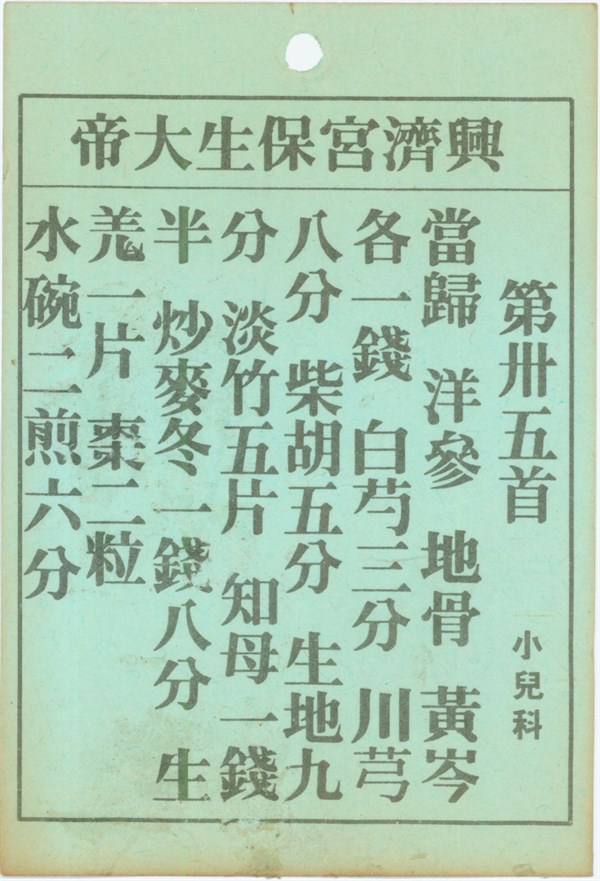 興濟宮保生大帝
第卅五首 小兒科
當歸 洋參 地骨 黃岑
各一錢 白芍三分 川芎
八分 柴胡五分 生地九
分 淡竹五片 知母一錢
半 炒麥冬一錢八分 生
羌一片 棗二粒
水碗二煎六分